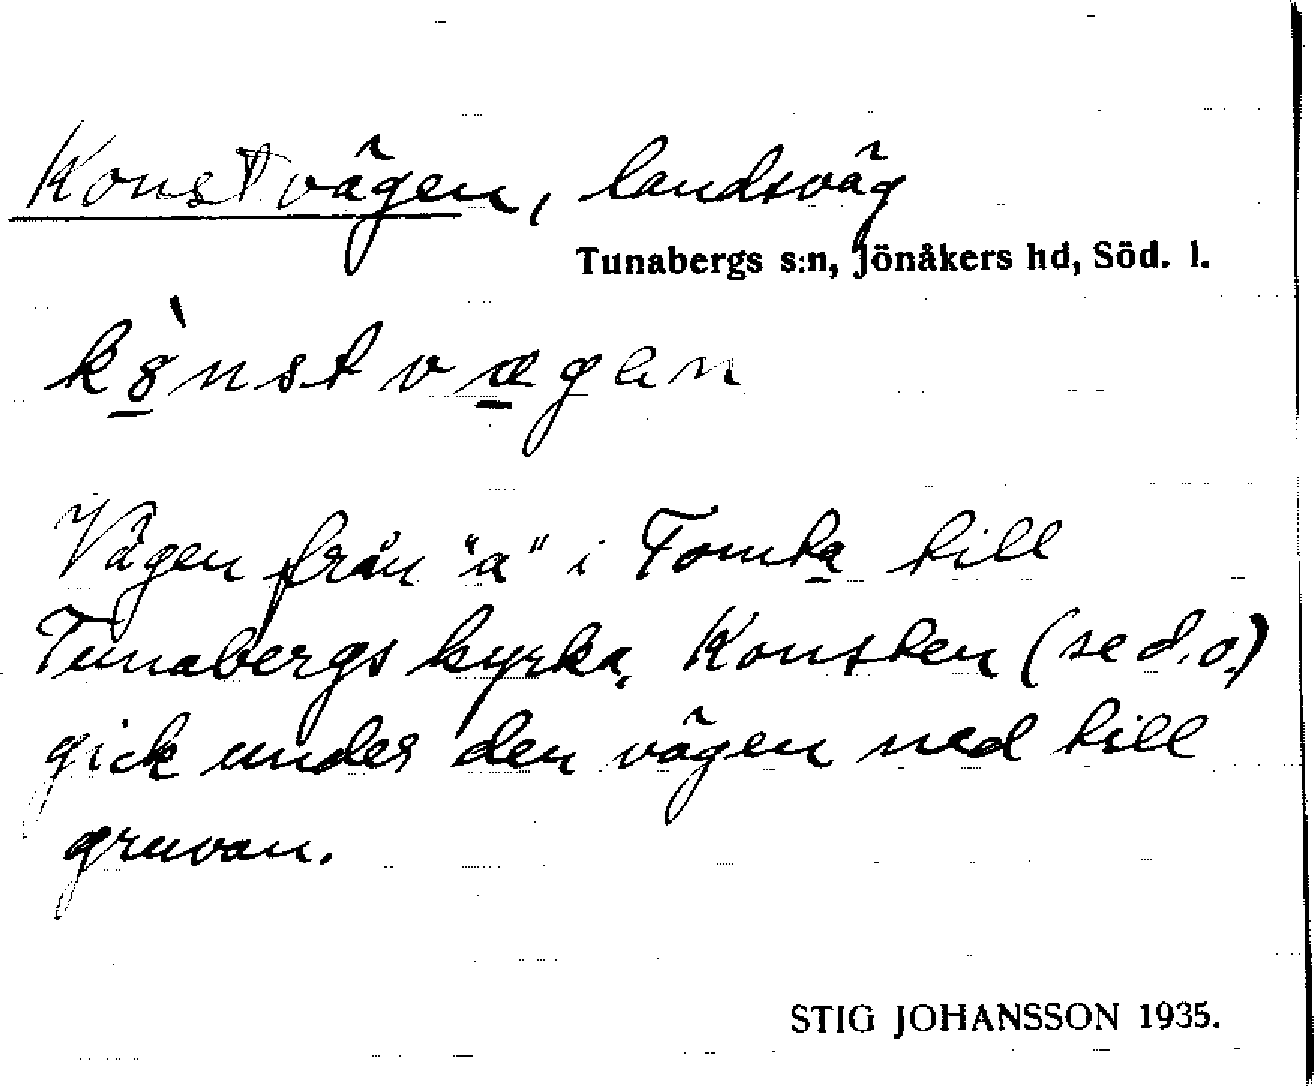 Konstvägen, landsväg
Tunabergs s:n, Jönåkers hd, Söd. l.
Vägen från "a" i Tomta till
Tunabergs kyrka. Konsten (se d.o.)
gick under den vägen ned till
gruvan.
STIG JOHANSSON 1935.